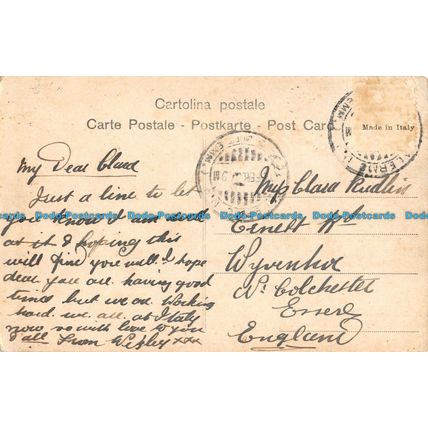 Cartolina postale
Carte Postale - Postkarte - Post Card
Made in Italy
My Dear Clara
Just a line to let
you know I am
at it & hoping this
will find you well. I hope
dear you are having good
times but we are working
hard we all at Italy
now so with love to you
all from Wesley xxx
Miss Clara
Ernest Rd
Wyvenhoe
Nr Colchester
Essex
England
Dodo Postcards Dodo Postcards Dodo Postcards Dodo Postcards